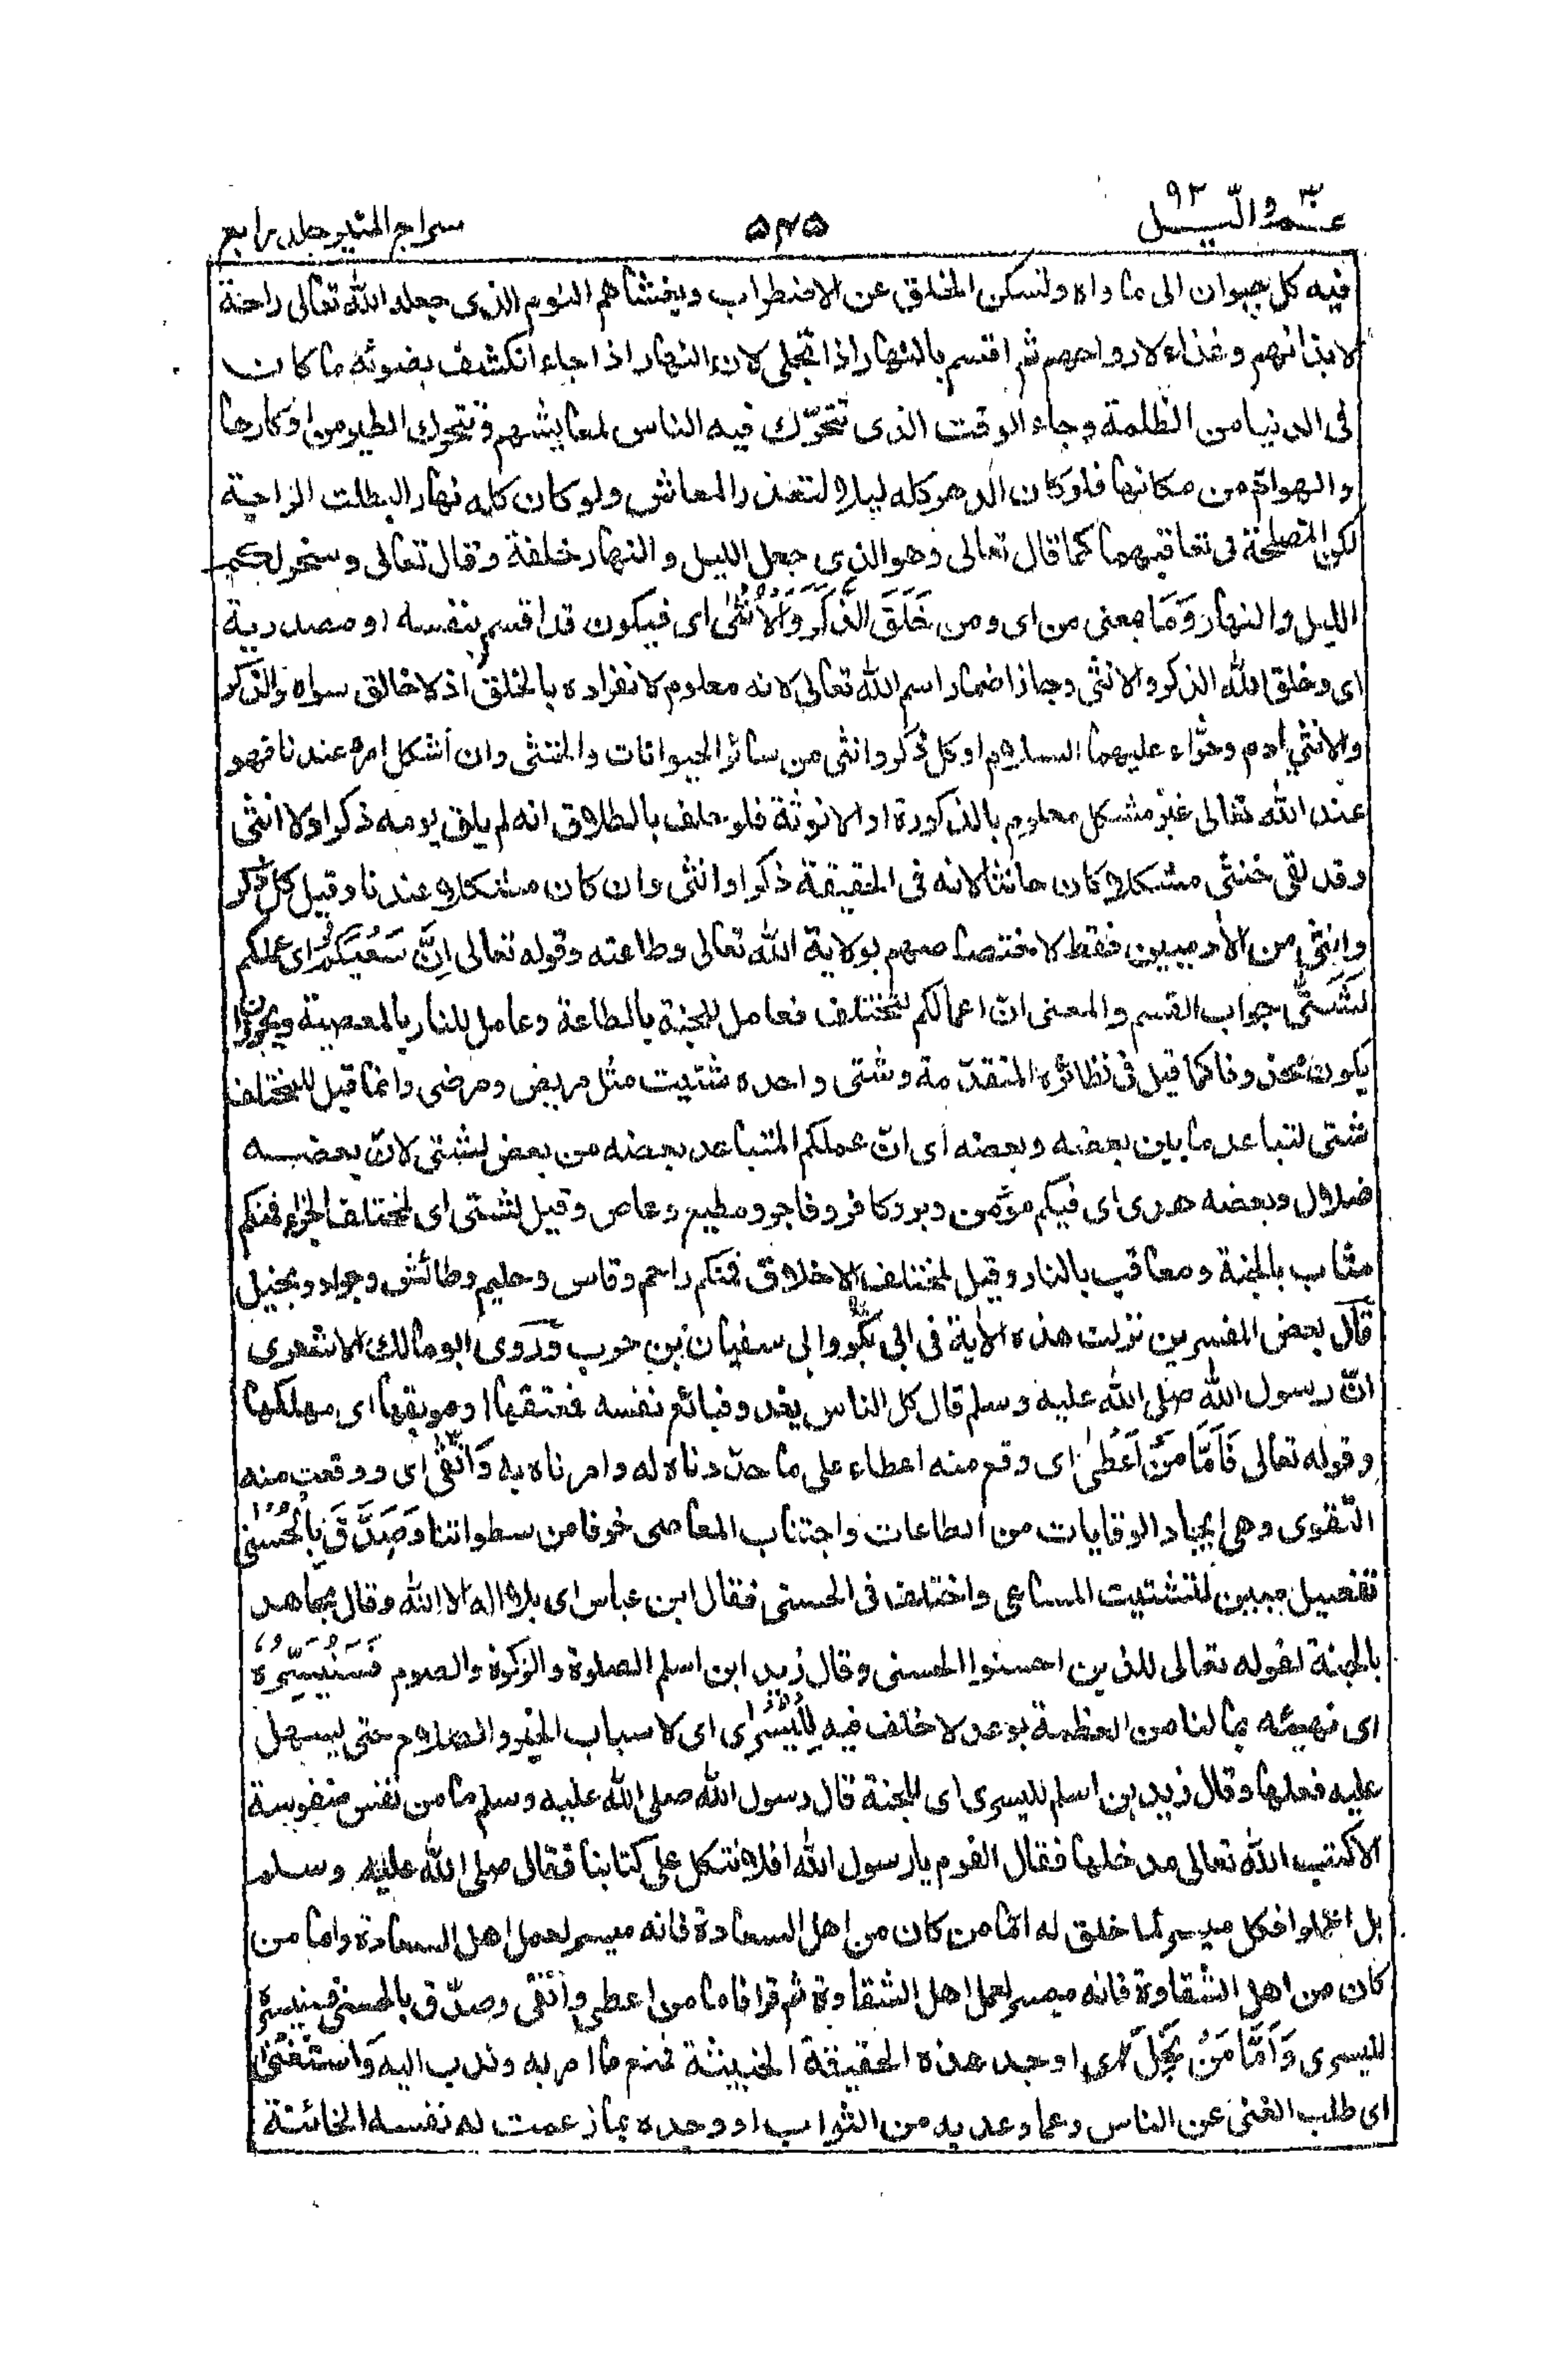 عـمـ ٣٠ والّيـــل ٩٢
٥٤٥
سراج المنير جلد رابع
فيه كل حيوان الى ماواه ولسكن الخلق عن الاضطراب ويغشاهم النوم الذى جعله الله تعالى راحة
لابدانهم وغذاء لارواحهم ثم اقسم بالنهار اذا تجلى لان النهار اذا جاء انكشف بضوئه ما كان
فى الدنيا من الظلمة وجاء الوقت الذى تتحرّك فيه الناس لمعايشهم وتتحرك الطير من اوكارها
والهوامّ من مكانها فلو كان الدهر كله ليلا لتعذر المعاش ولو كان كله نهارا لبطلت الراحة
لكن المصلحة فى تعاقبهما كما قال تعالى وهو الذى جعل الليل والنهار خلفة وقال تعالى وسخر لكم
الليل والنهار وَمَا بمعنى من اى ومن خَلَقَ الذَّكَرَ وَالْأُنْثٰى اى فيكون قد اقسم بنفسه او مصدرية
اى وخلق الله الذكر والانثى وجاز اضمار اسم الله تعالى لانه معلوم لانفراده بالخلق اذ لا خالق سواه والذكر
والانثى ادم وحوّاء عليهما السلام او كل ذكر وانثى من سائر الحيوانات والخنثى وان اشكل امره عندنا فهو
عند الله تعالى غير مشكل معلوم بالذكورة او الانوثة فلو حلف بالطلاق انه لم يلق يومه ذكرا ولا انثى
وقد لقى خنثى مشكلا كان حانثا لانه فى الحقيقة ذكرا وانثى وان كان مشكلا عندنا وقيل كل ذكر
وانثى من الادميين فقط لاختصاصهم بولاية الله تعالى وطاعته وقوله تعالى اِنَّ سَعْيَكُمْ اى عملكم
لَشَتّٰى جواب القسم والمعنى انّ اعمالكم لتختلف فعامل للجنة بالطاعة وعامل للنار بالمعصية ويجوز ان
يكون محذوفا كما قيل فى نظائره المتقدّمة وشتى واحده شتيت مثل مريض ومرضى وانما قيل للمختلف
شتى لتباعد ما بين بعضه وبعضه اى انّ عملكم المتباعد بعضه من بعض لشتى لانّ بعضـــه
ضلال وبعضه هدى اى فيكم مؤمن وبر وكافر وفاجر ومطيع وعاص وقيل لشتى اى لمختلف الجزاء فمنكم
مثاب بالجنة ومعاقب بالنار وقيل لمختلف الاخلاق فمنكم راحم وقاس وحليم وطائش وجواد وبخيل
قال بعض المفسرين نزلت هذه الاية فى ابى بكر وابى سفيان بن حرب وروى ابو مالك الاشعرى
انّ رسول الله صلى الله عليه وسلم قال كل الناس يغدو فبائع نفسه فمعتقها او موبقها اى مهلكها
وقوله تعالى فَاَمَّا مَنْ اَعْطٰى اى وقع منه اعطاء على ما حدّدناه له وامرناه به وَاتَّقٰى اى ووقعت منه
التقوى وهى ايجاد الوقايات من الطاعات واجتناب المعاصى خوفا من سطواتنا وَصَدَّقَ بِالْحُسْنٰى
تفصيل مبين لتشتيت المساعى واختلف فى الحسنى فقال ابن عباس اى بلا اله الا الله وقال مجاهد
بالجنة لقوله تعالى للذين احسنوا الحسنى وقال زيد ابن اسلم الصلوة والزكوة والصوم فَسَنُيَسِّرُهُ
اى نهيئه بما لنا من العظمة بوعد لا خلف فيه لِلْيُسْرٰى اى لاسباب الخير والصلاح حتى ليسهل
عليه فعلها وقال زيد بن اسلم لليسرى اى للجنة قال رسول الله صلى الله عليه وسلم ما من نفس منفوسة
الا كتب الله تعالى مدخلها فقال القوم يا رسول الله افلا نتكل على كتابنا فقال صلى الله عليه وسلم
بل اعملوا فكل ميسر لما خلق له امّا من كان من اهل السعادة فانه ميسر لعمل اهل السعادة واما من
كان من اهل الشقاوة فانه ميسر لعمل اهل الشقاوة ثم قرا فاما من اعطى واتقى وصدّق بالحسنى فسنيسره
لليسرى وَاَمَّا مَنْ بَخِلَ اى اوجد هذه الحقيقة الخبيثة فمنع ما امر به وندب اليه وَاسْتَغْنٰى
اى طلب الغنى عن الناس وعما وعد به من الثواب او وجده بما زعمت له نفسه الخائنة